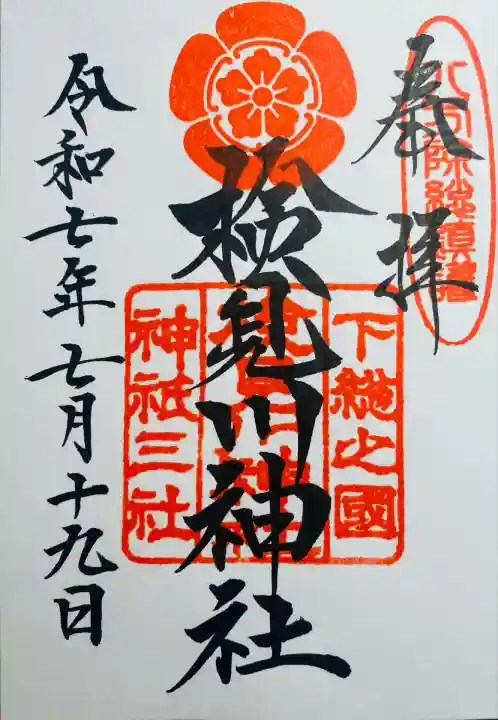 奉拝
八方除総鎮護
下総之國
検見川神社
神祇三社
令和七年七月十九日